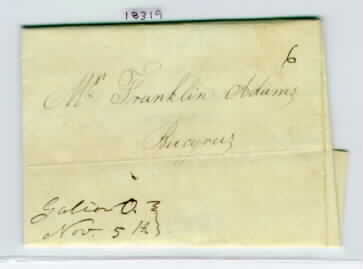 18319
6
Mr Franklin Adams
Bucyrus
Galion O.
Nov. 5th